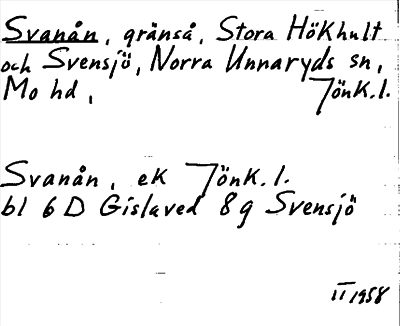 Svanån, gränså, Stora Hökhult
och Svensjö, Norra Unnaryds sn,
Mo hd, Jönk.l.
Svanån, ek Jönk.l.
bl 6 D Gislaved 8g Svensjö
II 1958